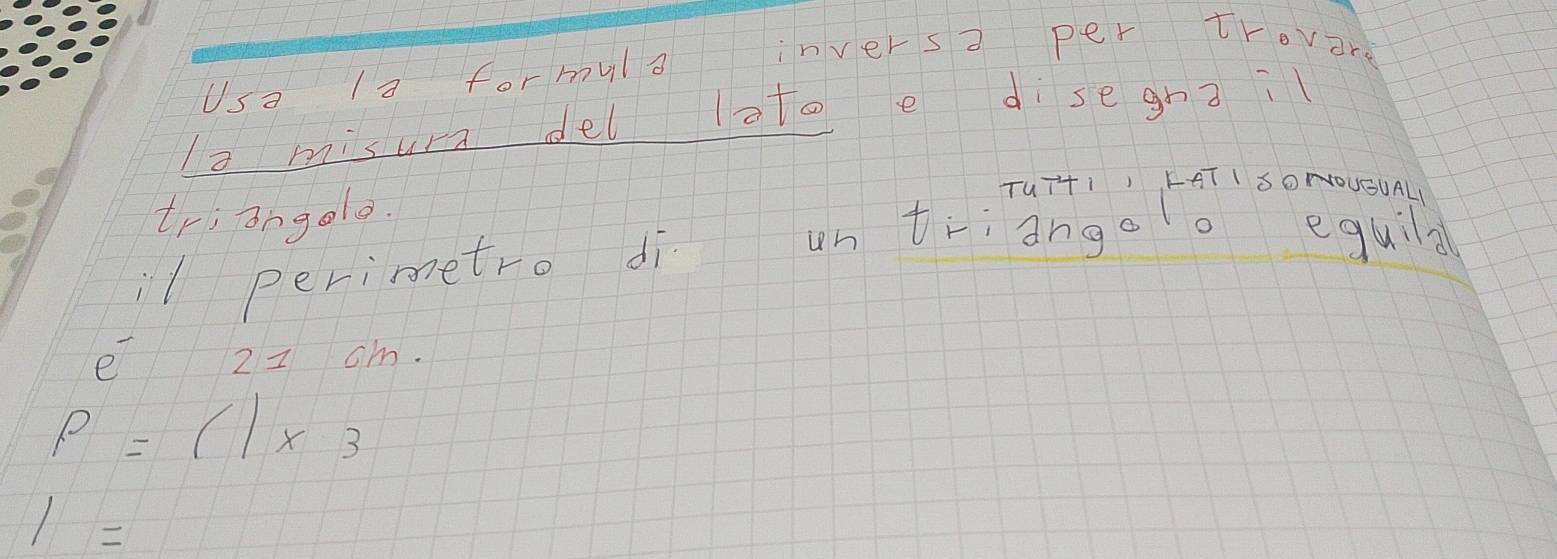 Usa la formula inversa per trovare
la misura del lato e disegna il
triangolo.
TUTTI I LATI SONO UGUALI
il perimetro di un triangolo equilat
è 21 cm.
P = (l x 3
l =